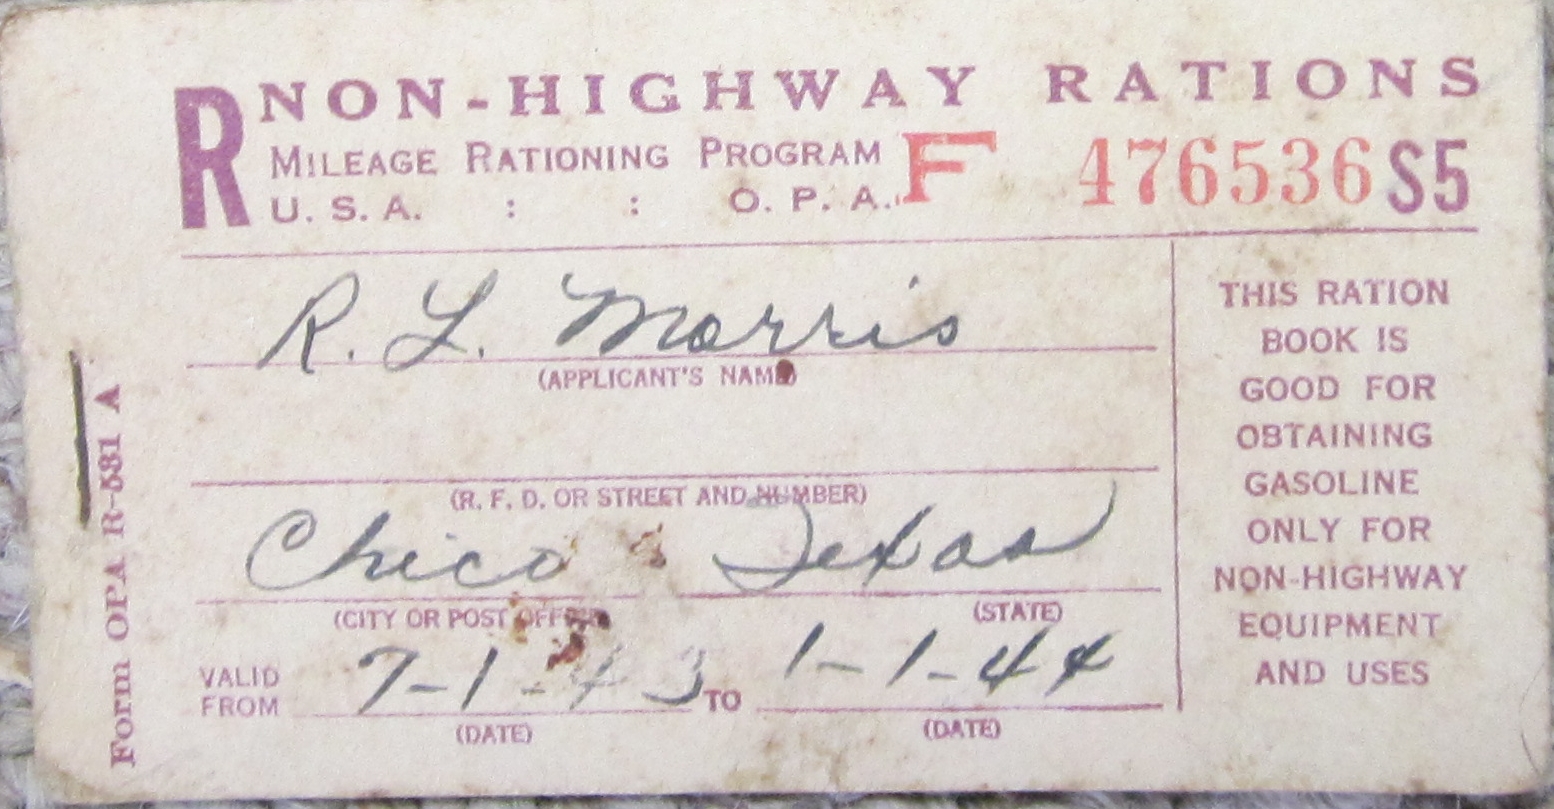 R NON-HIGHWAY RATIONS
MILEAGE RATIONING PROGRAM F 476536 S5
U. S. A. : : O. P. A.
R. L. Morris
(APPLICANT'S NAME)
(R. F. D. OR STREET AND NUMBER)
Chico Texas
(CITY OR POST OFFICE) (STATE)
VALID FROM 7-1-43 TO 1-1-44
(DATE) (DATE)
THIS RATION
BOOK IS
GOOD FOR
OBTAINING
GASOLINE
ONLY FOR
NON-HIGHWAY
EQUIPMENT
AND USES
Form OPA R-531 A